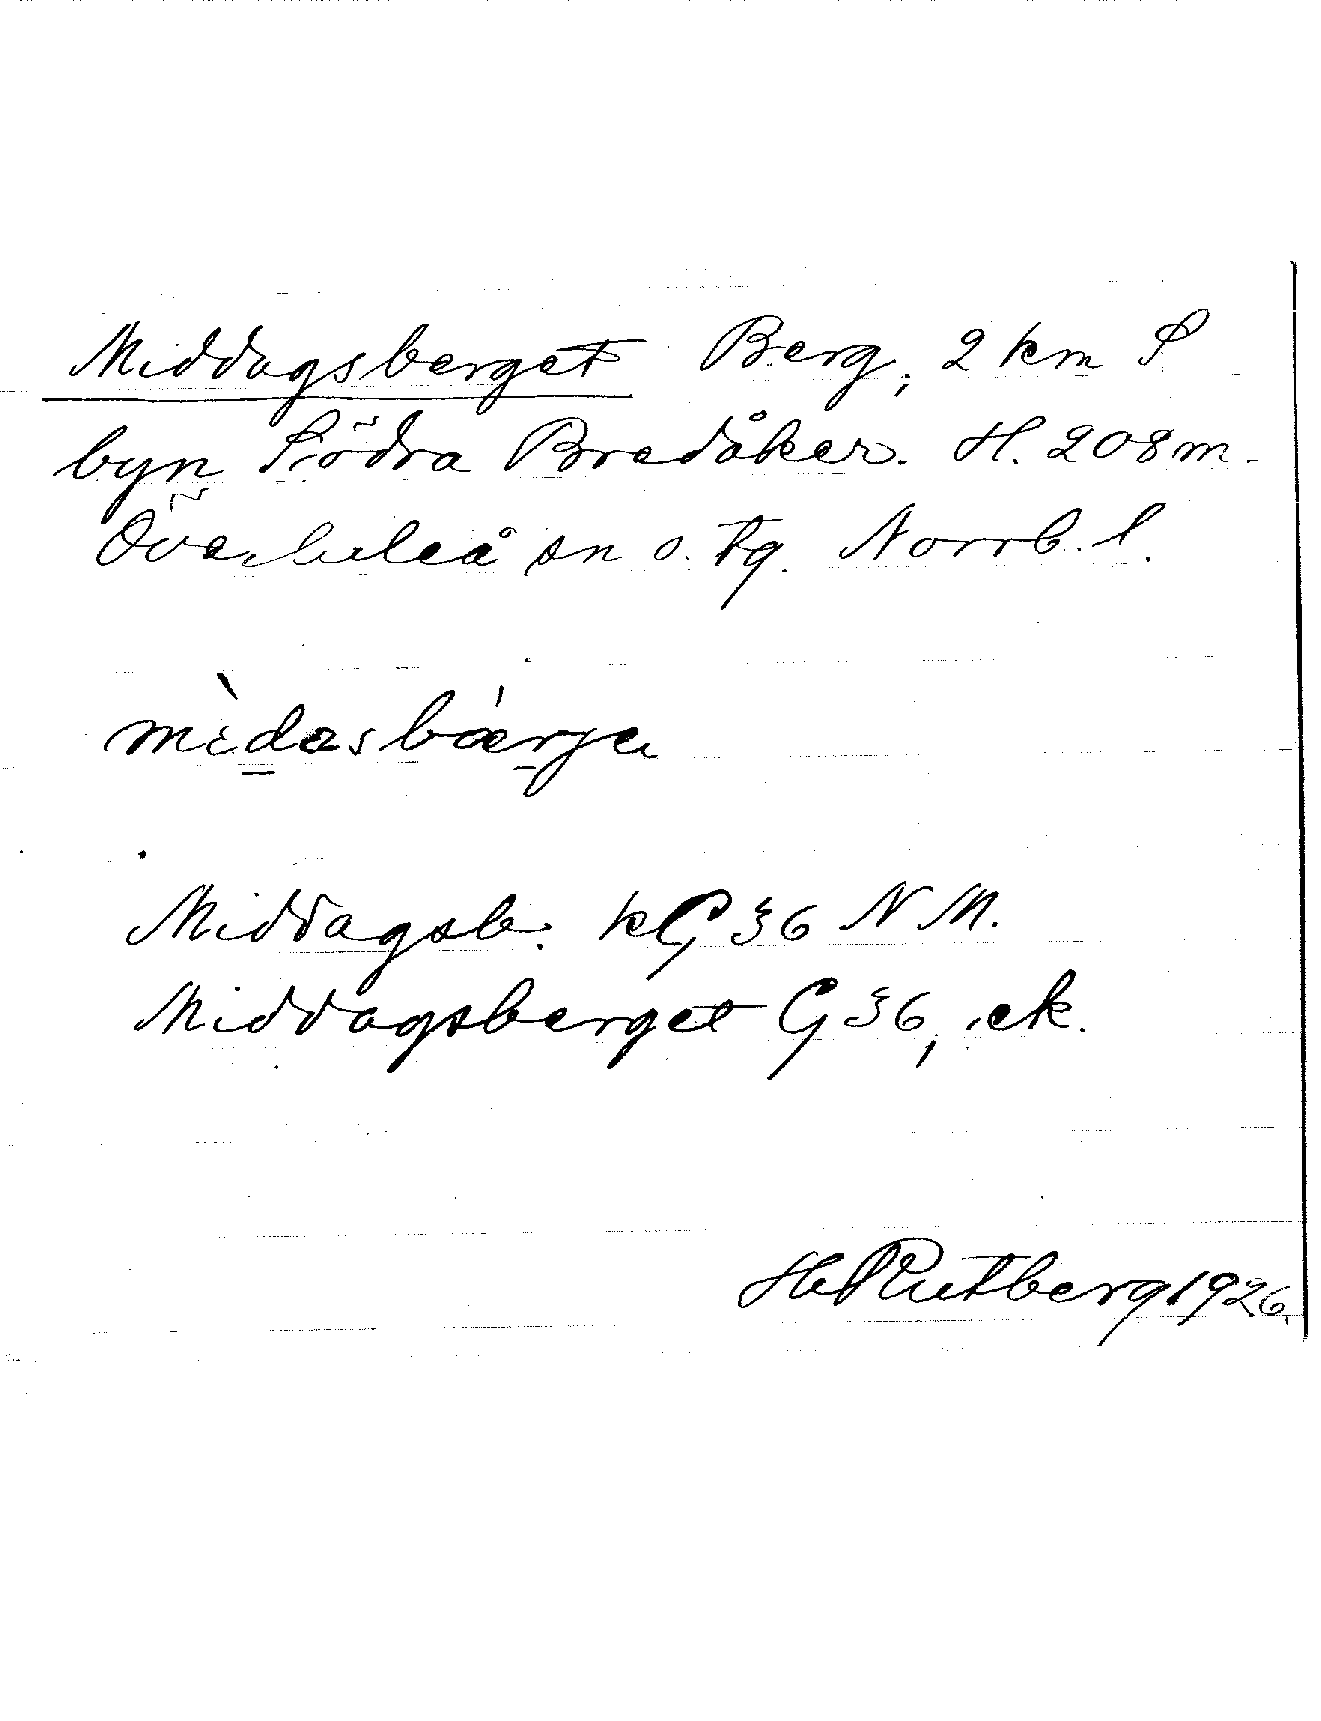 Middagsberget Berg, 2 km S
byn Södra Bredåker. H. 208 m.
Överluleå sn o. tg. Norrb. l.
mìdasbǽrja
Middagsb. kG 36 N M.
Middagsberget G 36, ek.
H. Rutberg 1926.